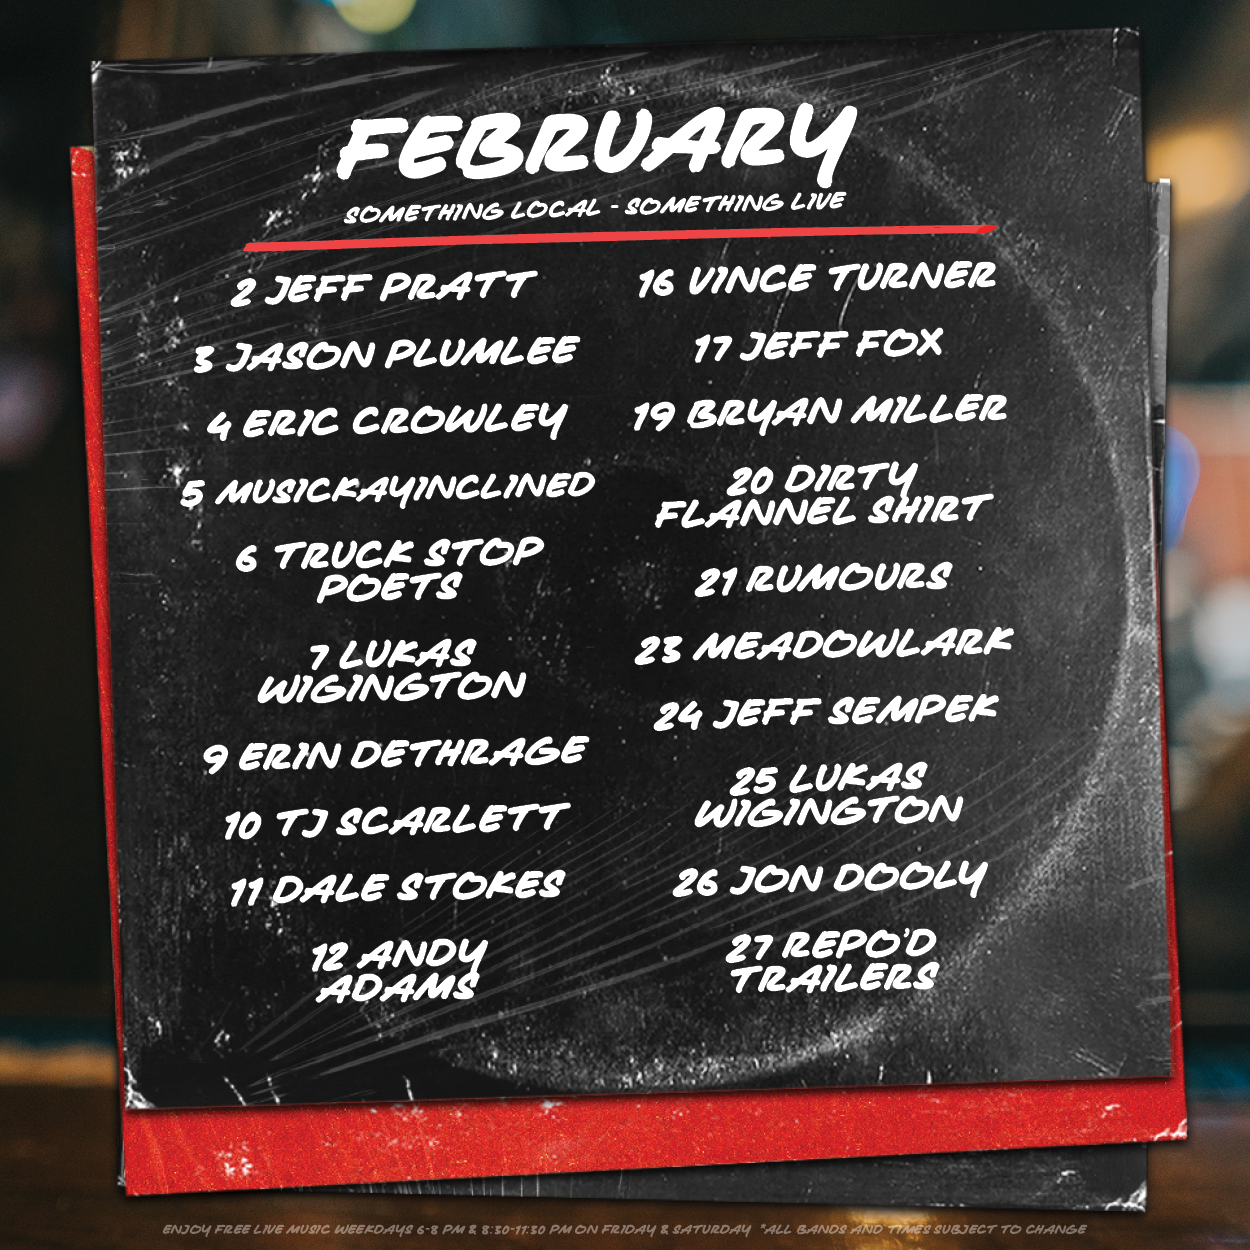 FEBRUARY
SOMETHING LOCAL - SOMETHING LIVE
2 JEFF PRATT
3 JASON PLUMLEE
4 ERIC CROWLEY
5 MUSICKAYINCLINED
6 TRUCK STOP
POETS
7 LUKAS
WIGINGTON
9 ERIN DETHRAGE
10 TJ SCARLETT
11 DALE STOKES
12 ANDY
ADAMS
16 VINCE TURNER
17 JEFF FOX
19 BRYAN MILLER
20 DIRTY
FLANNEL SHIRT
21 RUMOURS
23 MEADOWLARK
24 JEFF SEMPEK
25 LUKAS
WIGINGTON
26 JON DOOLY
27 REPO'D
TRAILERS
ENJOY FREE LIVE MUSIC WEEKDAYS 6-8 PM & 8:30-11:30 PM ON FRIDAY & SATURDAY *ALL BANDS AND TIMES SUBJECT TO CHANGE